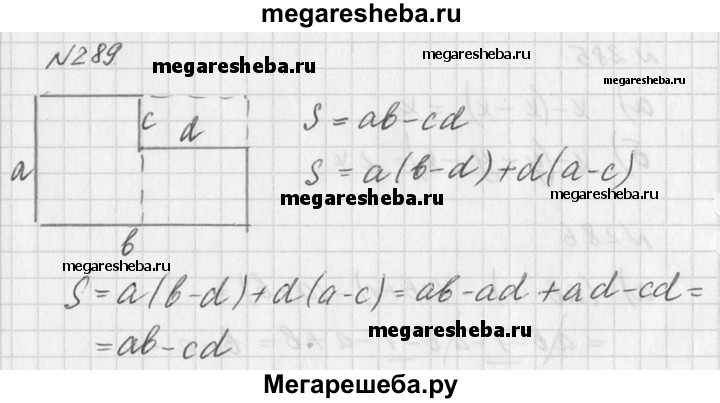 megaresheba.ru
N289
megaresheba.ru
megaresheba.ru
megaresheba.ru
c
d
a
b
S = ab-cd
S = a(b-d)+d(a-c)
megaresheba.ru
megaresheba.ru
megaresheba.ru
S = a(b-d)+d(a-c) = ab-ad+ad-cd =
= ab-cd
megaresheba.ru
Мегарешеба.ру